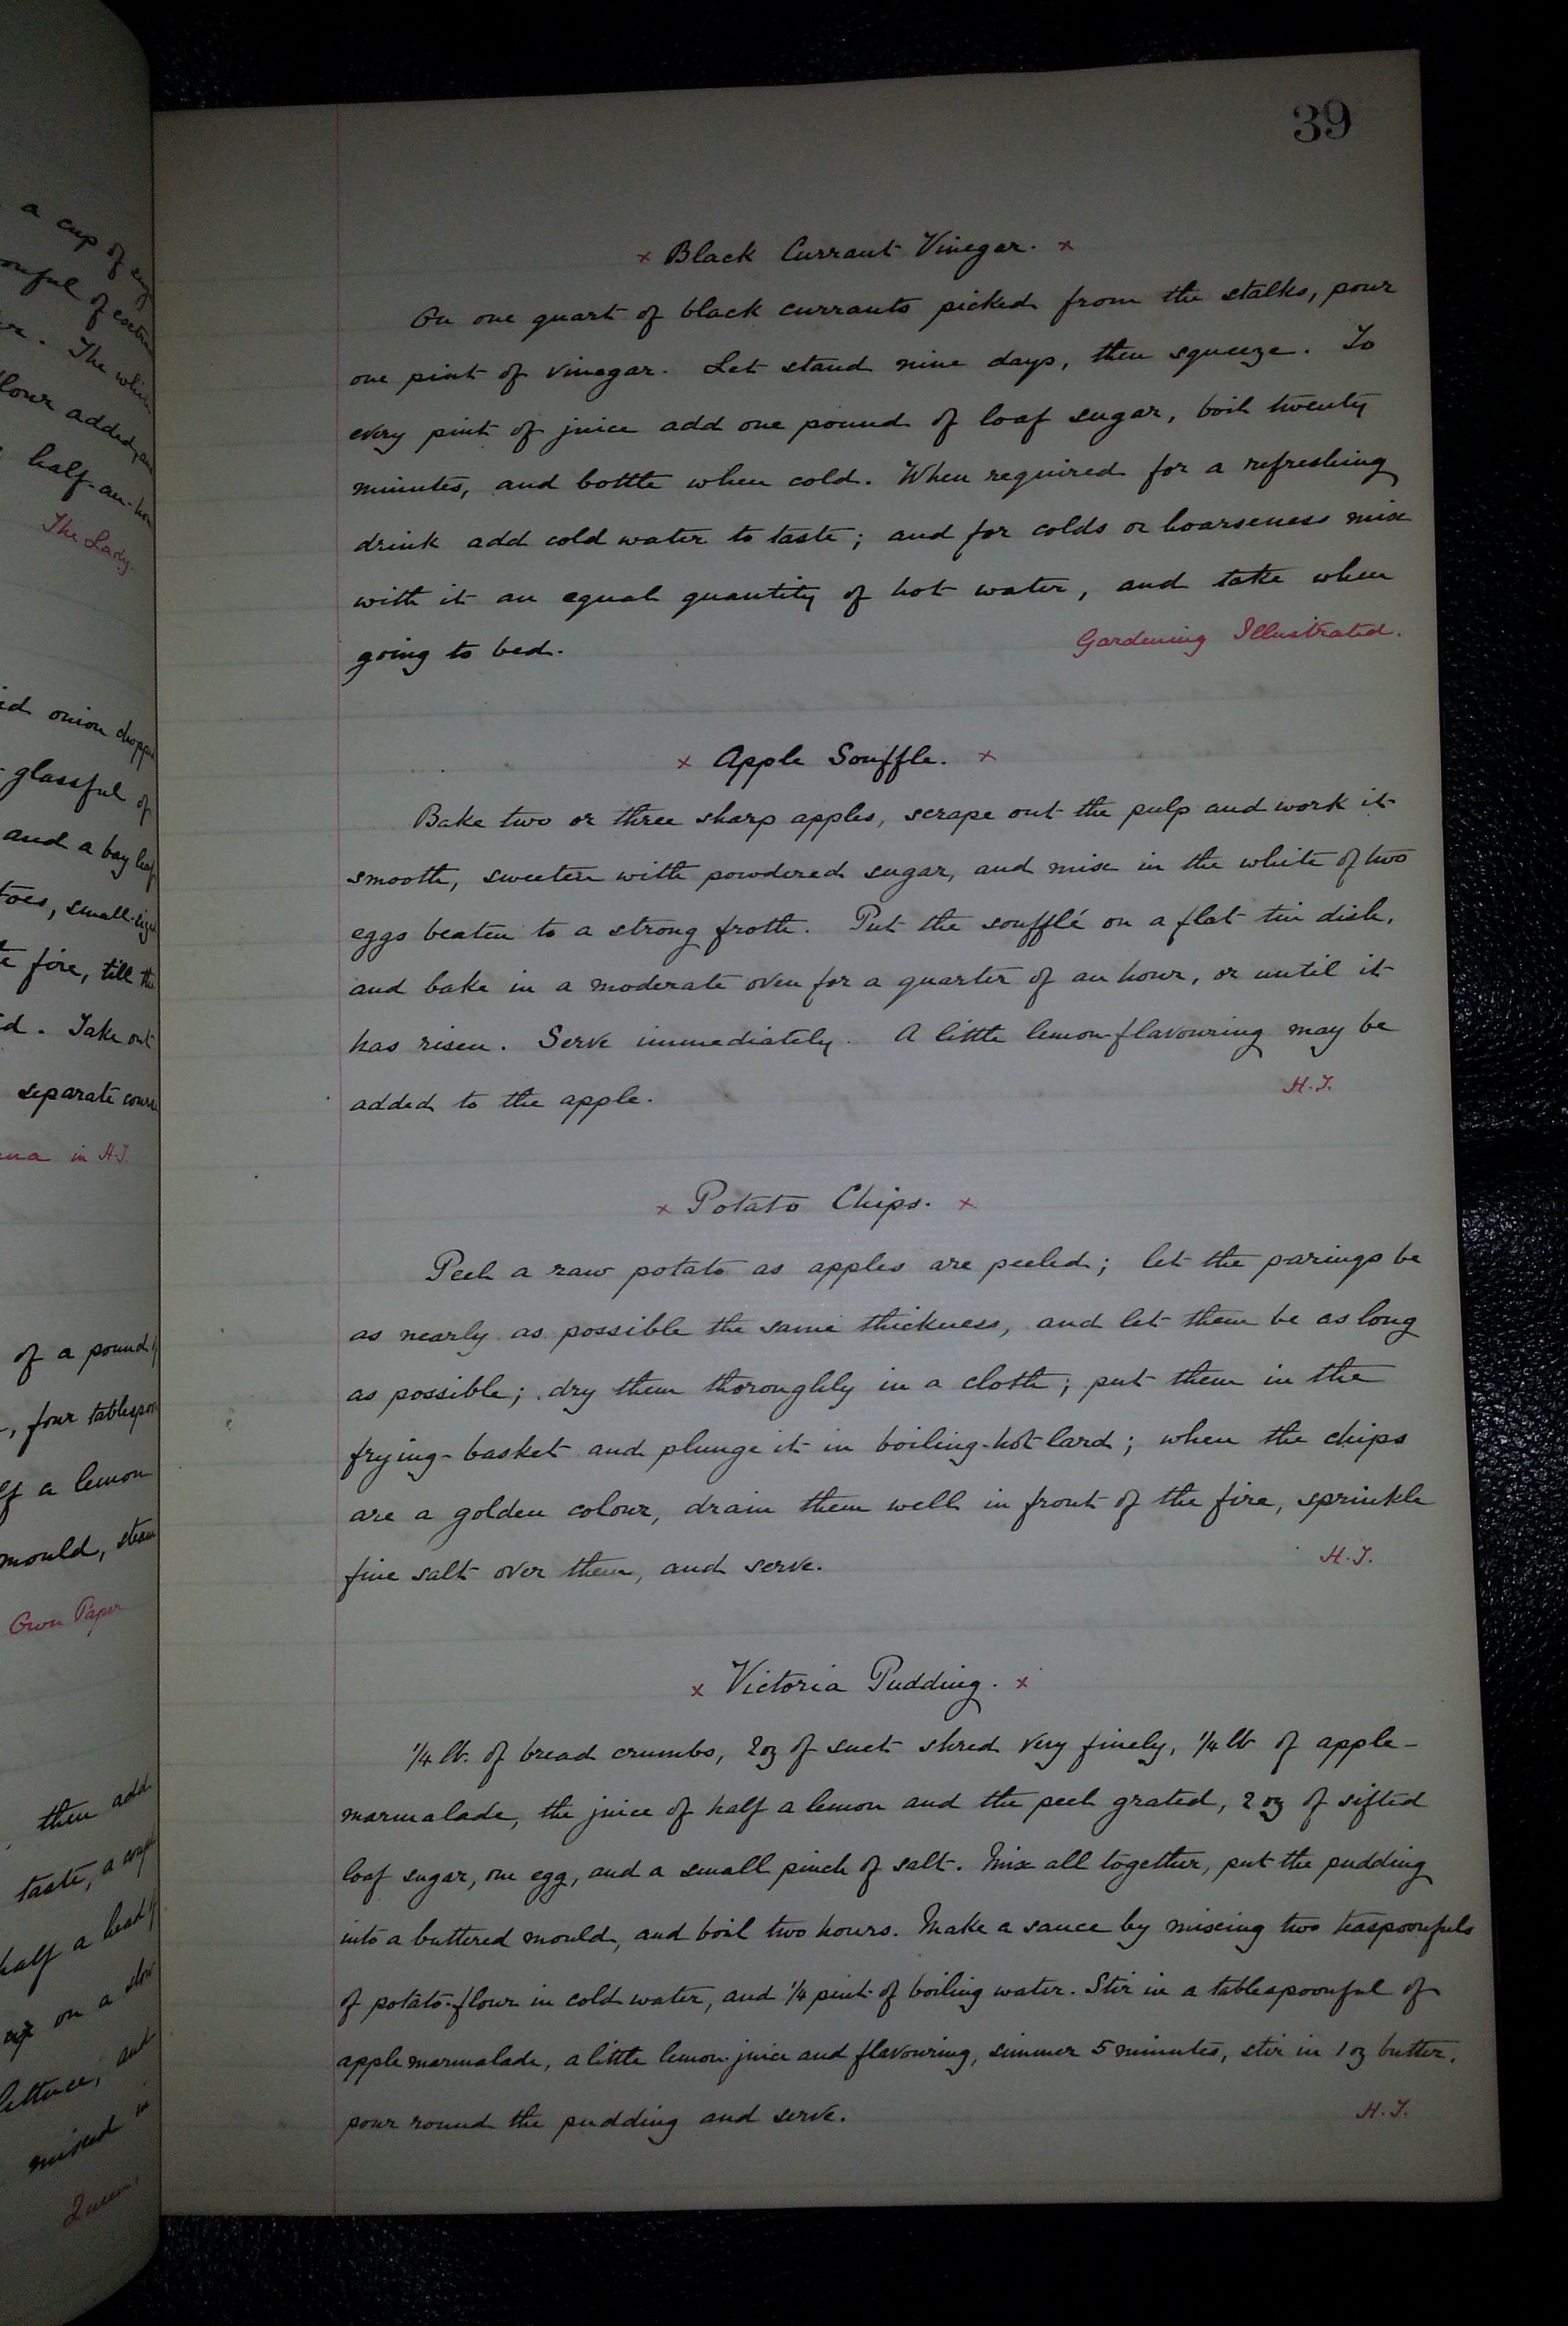 a cup of
onful of
The
flour added,
half-an-
The Lady
onion
glassful of
and a bay leaf
toes, small
fire, till the
Take out
separate course
in H.J.
of a pound of
four
a lemon
mould, steam
Own Paper
then add
taste, a
half a head of
on a slow
lettuce, and
mixed in
Queen
39
x Black Currant Vinegar. x
On one quart of black currants picked from the stalks, pour
one pint of vinegar. Let stand nine days, then squeeze. To
every pint of juice add one pound of loaf sugar, boil twenty
minutes, and bottle when cold. When required for a refreshing
drink add cold water to taste; and for colds or hoarseness mix
with it an equal quantity of hot water, and take when
going to bed. Gardening Illustrated.
x Apple Souffle. x
Bake two or three sharp apples, scrape out the pulp and work it
smooth, sweeten with powdered sugar, and mix in the white of two
eggs beaten to a strong froth. Put the soufflé on a flat tin dish,
and bake in a moderate oven for a quarter of an hour, or until it
has risen. Serve immediately. A little lemon-flavouring may be
added to the apple. H.J.
x Potato Chips. x
Peel a raw potato as apples are peeled; let the parings be
as nearly as possible the same thickness, and let them be as long
as possible; dry them thoroughly in a cloth; put them in the
frying-basket and plunge it in boiling-hot lard; when the chips
are a golden colour, drain them well in front of the fire, sprinkle
fine salt over them, and serve. H.J.
x Victoria Pudding. x
1/4 lb. of bread crumbs, 2oz of suet shred very finely, 1/4 lb of apple-
marmalade, the juice of half a lemon and the peel grated, 2 oz of sifted
loaf sugar, one egg, and a small pinch of salt. Mix all together, put the pudding
into a buttered mould, and boil two hours. Make a sauce by mixing two teaspoonfuls
of potato-flour in cold water, and 1/4 pint of boiling water. Stir in a tablespoonful of
apple marmalade, a little lemon-juice and flavouring, simmer 5 minutes, stir in 1 oz butter,
pour round the pudding and serve. H.J.